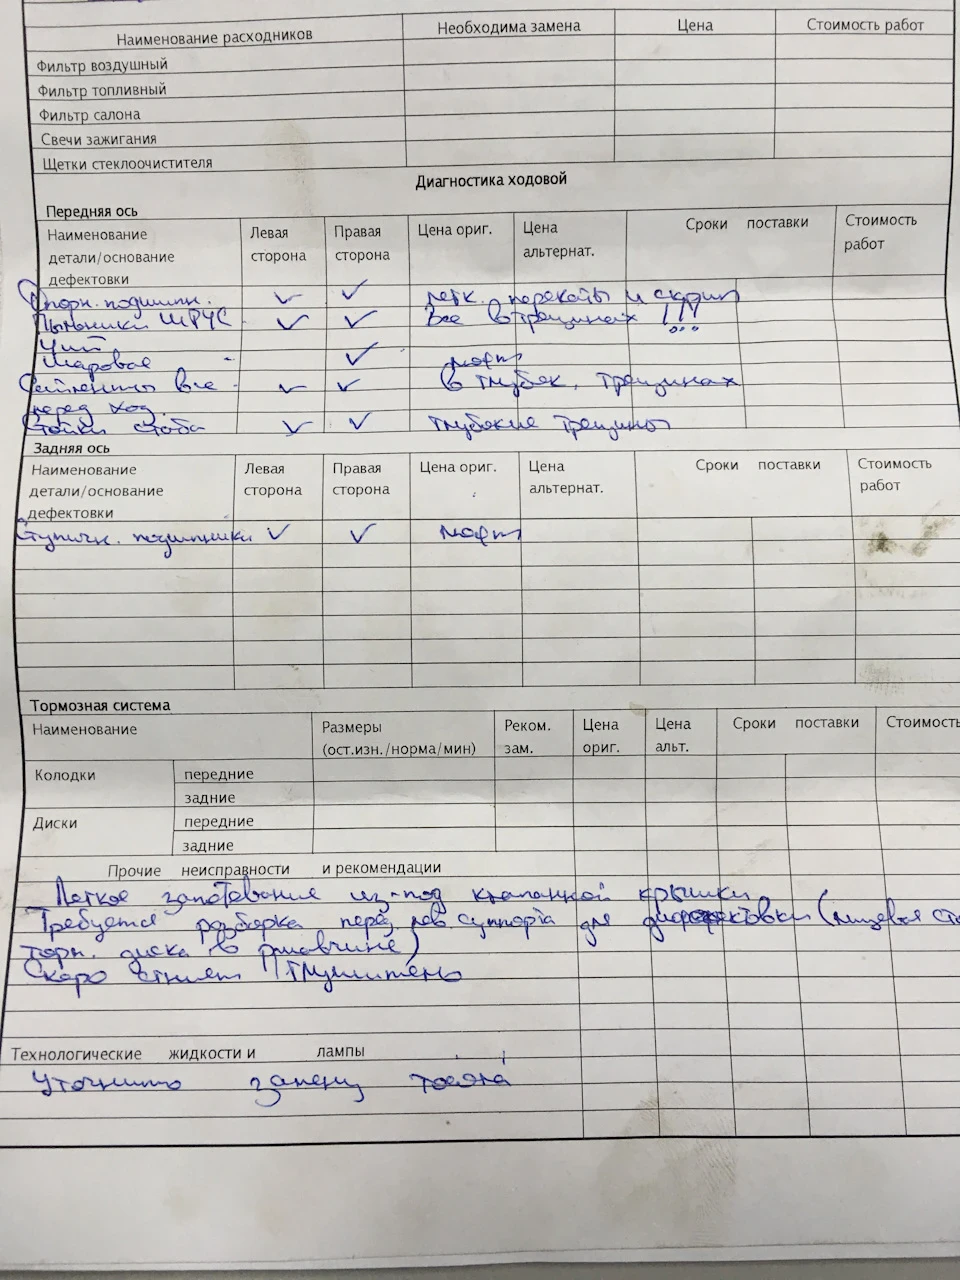 Наименование расходников Необходима замена Цена Стоимость работ
Фильтр воздушный
Фильтр топливный
Фильтр салона
Свечи зажигания
Щетки стеклоочистителя
Диагностика ходовой
Передняя ось
Наименование детали/основание дефектовки Левая сторона Правая сторона Цена ориг. Цена альтернат. Сроки поставки Стоимость работ
Опорн. подшипн. ✓ ✓ легк. перекаты и скрип
Пыльники ШРУС ✓ ✓ Все в трещинах !!!
Шаровая - ✓ люфт
Сайленты все - ✓ ✓ в глубок. трещинах
перед ход.
Стойки стаба ✓ ✓ глубокие трещины
Задняя ось
Наименование детали/основание дефектовки Левая сторона Правая сторона Цена ориг. Цена альтернат. Сроки поставки Стоимость работ
Ступичн. подшипники ✓ ✓ люфт
Тормозная система
Наименование Размеры (ост.изн./норма/мин) Реком. зам. Цена ориг. Цена альт. Сроки поставки Стоимость
Колодки передние
задние
Диски передние
задние
Прочие неисправности и рекомендации
Легкое запотевание из-под клапанной крышки
Требуется разборка перед лев суппорта для дефектовки (лицевая сто
торм. диска в ржавчине)
Скоро сгниет глушитель
Технологические жидкости и лампы
Уточнить замену тосола